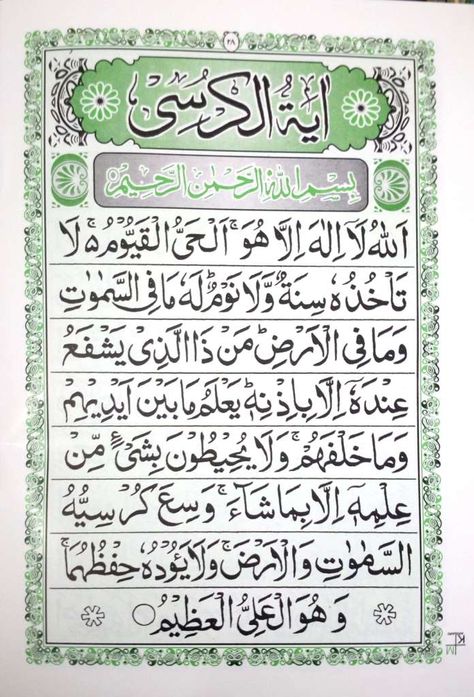 ٢٨
اية الكرسى
بِسْمِ اللهِ الرَّحْمٰنِ الرَّحِيْمِ
اَللهُ لَاۤ اِلٰهَ اِلَّا هُوَۚ اَلْحَیُّ الْقَيُّوْمُ ۵ لَا
تَاْخُذُهٗ سِنَةٌ وَّلَا نَوْمٌؕ لَهٗ مَا فِی السَّمٰوٰتِ
وَمَا فِی الْاَرْضِؕ مَنْ ذَا الَّذِیْ يَشْفَعُ
عِنْدَهٗۤ اِلَّا بِاِذْنِهٖؕ يَعْلَمُ مَا بَيْنَ اَيْدِيْهِمْ
وَمَا خَلْفَهُمْۚ وَلَا يُحِيْطُوْنَ بِشَیْءٍ مِّنْ
عِلْمِهٖۤ اِلَّا بِمَا شَآءَۚ وَسِعَ كُرْسِيُّهُ
السَّمٰوٰتِ وَالْاَرْضَۚ وَلَا يَئُوْدُهٗ حِفْظُهُمَاۚ
وَهُوَ الْعَلِیُّ الْعَظِيْمُ